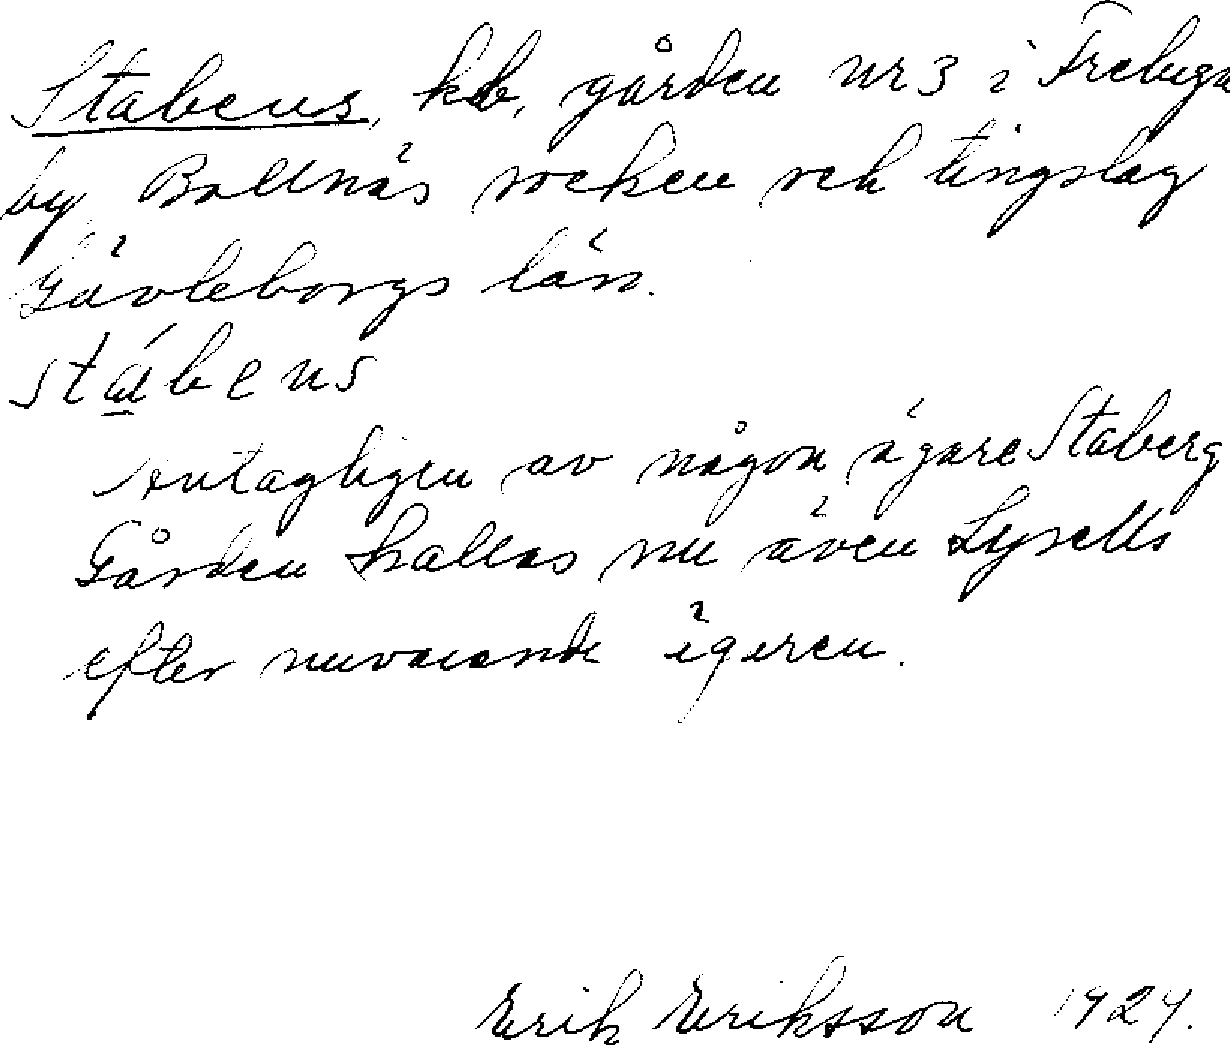 Stabens, kb, gården nr 3 i Freluga
by, Bollnäs socken och tingslag
Gävleborgs län.
stábens
Antagligen av någon ägare Staberg
Gården kallas nu även Lysells
efter nuvarande ägaren.
Erik Eriksson 1924.